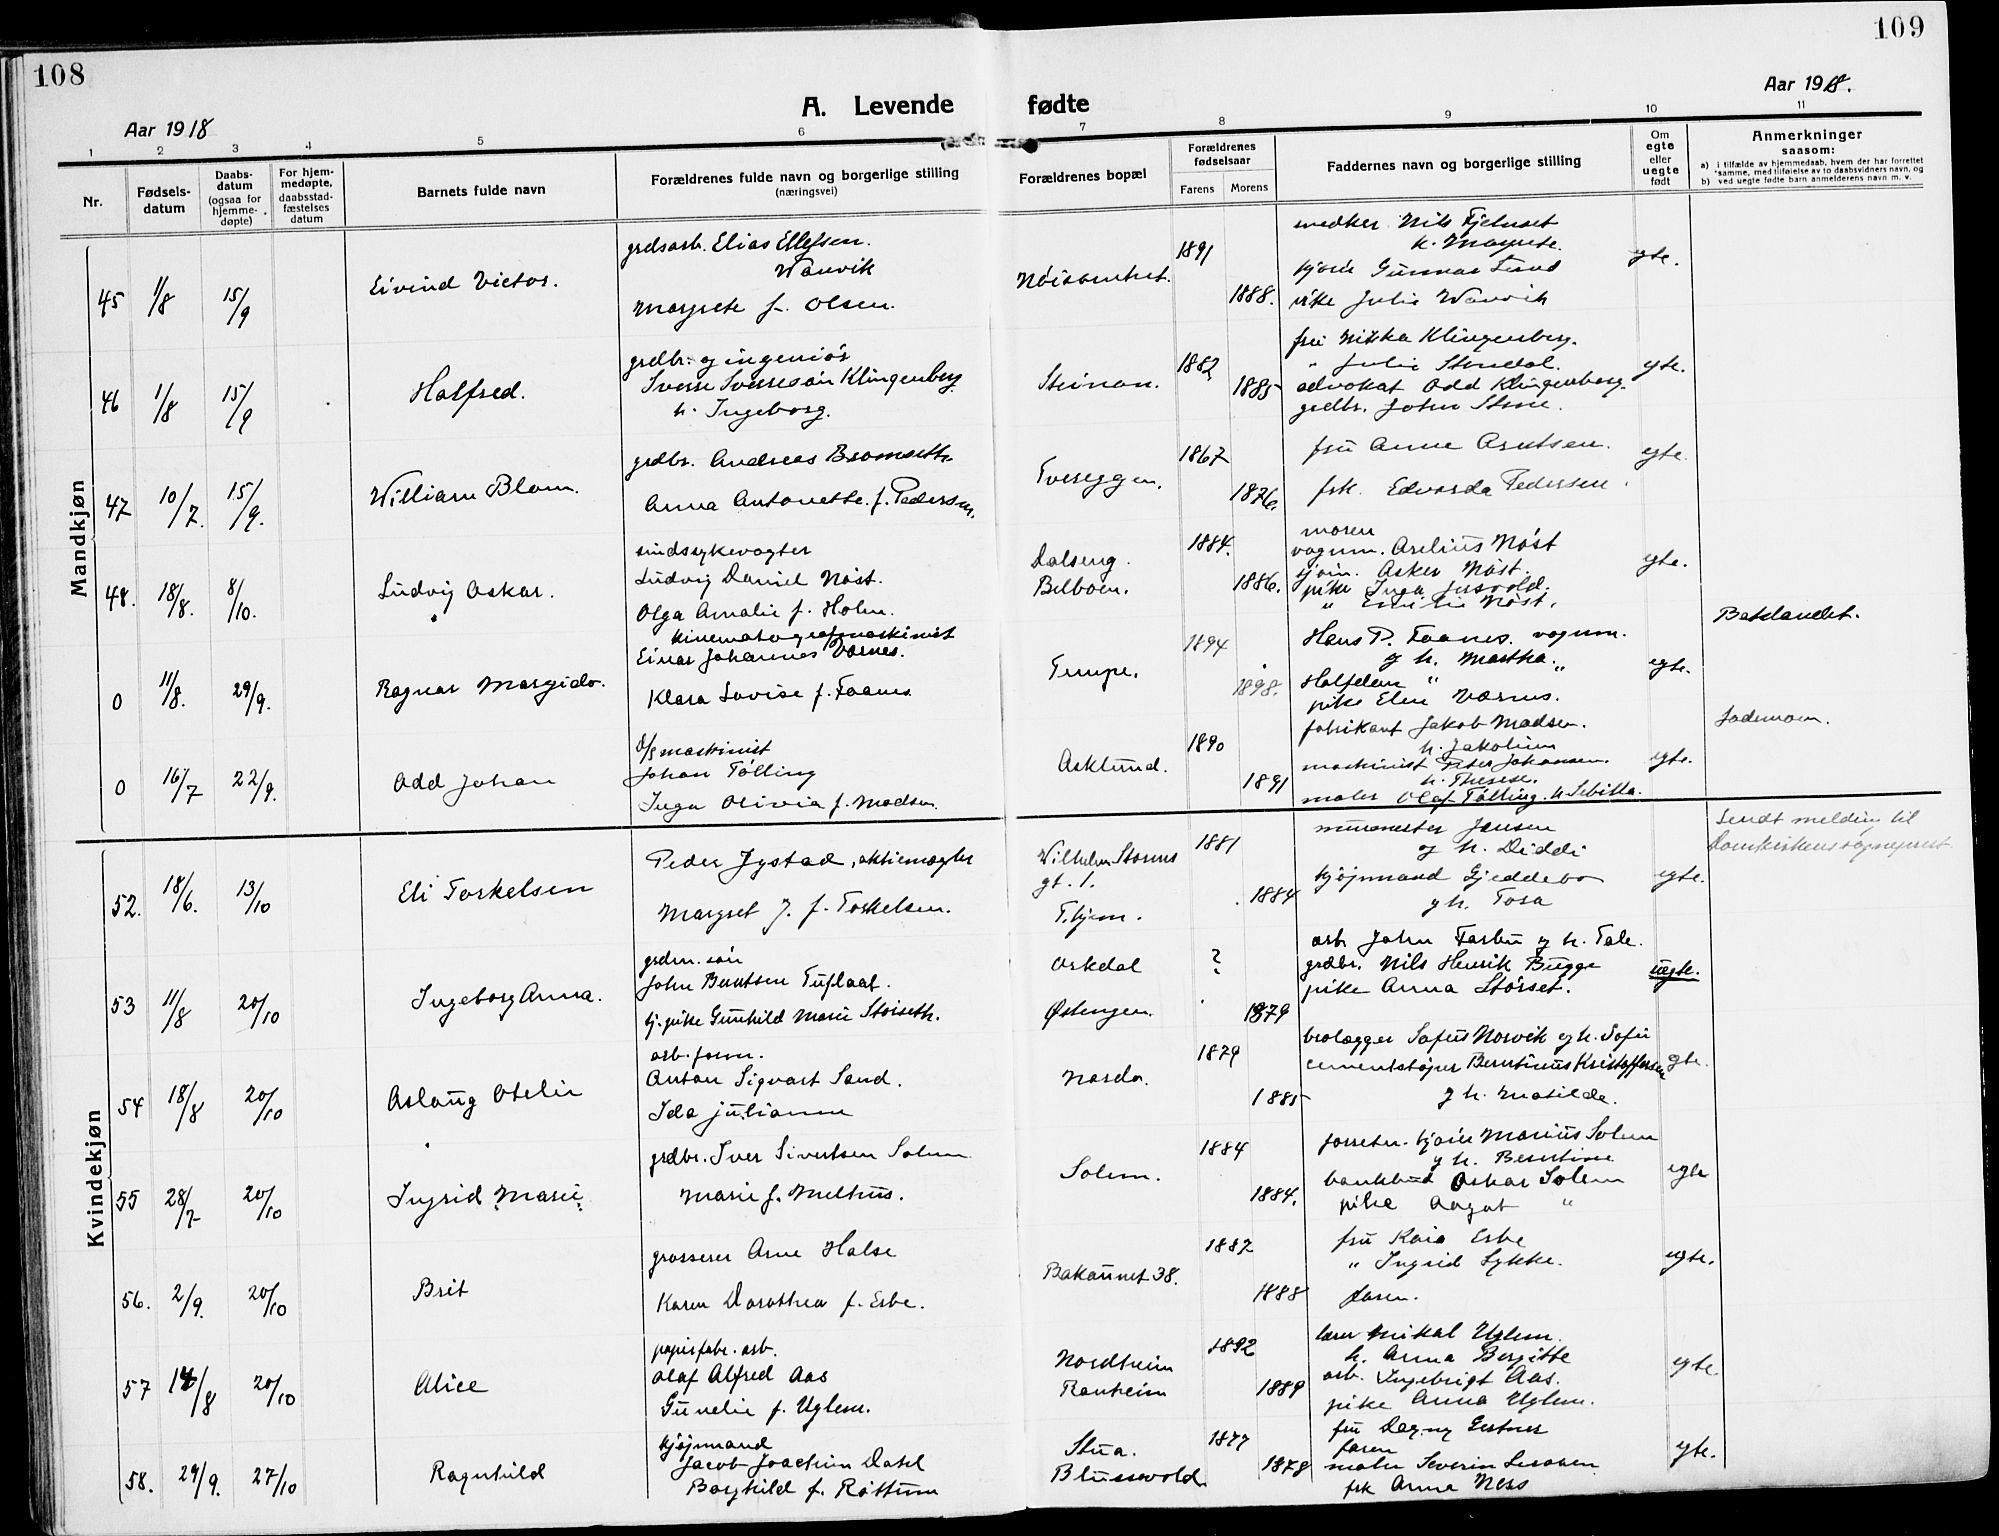 108
109
A. Levende fødte
Aar 1918
Aar 1918.
1 2 3 4 5 6 7 8 9 10 11
Nr.
Fødselsdatum
Daabsdatum (ogsaa for hjemmedøpte)
For hjemmedøpte, daabsstadfæstelses datum
Barnets fulde navn
Forældrenes fulde navn og borgerlige stilling (næringsvei)
Forældrenes bopæl
Forældrenes fødselsaar
Farens Morens
Faddernes navn og borgerlige stilling
Om egte eller uegte født
Anmerkninger saasom:
a) i tilfælde av hjemmedaab, hvem der har forrettet samme, med tilføielse av to daabsvidners navn, og
b) ved uegte fødte barn anmelderens navn m. v.
Mandkjøn
45 1/8 15/9 Eivind Victor.
grdsarb. Elias Ellefsen.
Wanvik
Margrete f. Olsen.
1891
1888.
Nils Fjelnset
k. Margrete.
Gunnar
Julie Wanvik
egte.
46 1/8 15/9 Halfred.
grdbr. og ingeniør
Sverre Sverresøn Klingenberg
h. Ingeborg.
Steinan.
1882
1885
fru Mikka Klingenberg.
" Julie Stendal.
advokat Odd Klingenberg.
grdbr. John Stene.
egte.
47 10/7. 15/9. William Blom.
grdbr. Andreas Bromseth.
Anna Antonette f. Pedersen.
Tvereggen.
1867
1876.
fru Anne Arntsen.
frk. Edvarda Pedersen.
egte.
48. 18/8. 8/10. Ludvig Oskar.
sindssykevogter
Ludvig Daniel Nøst.
Olga Amalie f. Holm.
Dalseng.
Belboen.
1884.
1886.
moren
vognm. Arelius Nøst
Asker Nøst.
pike Inga
" Emilie Nøst.
egte.
0 11/8. 29/9. Ragnar Margido.
kinematografmaskinist
Einar Johannes Værnes.
Klara Lovise f. Faanes
Tempe.
1894
1898.
Hans P. Faanes. vognm.
og h. Martha. "
Halfdan "
pike Elen Værnes.
egte.
Baklandet.
0 16/7 22/9. Odd Johan
d/s maskinist
Johan Tølling
Inga Olivia f. Madsen
Asklund.
1890
1891
fabrikant Jakob Madsen.
h. Jakobine
maskinist Peter Johansen.
h. Therese.
maler Olaf Tølling. h.
egte.
Lademoen.
Kvindekjøn
52. 18/6. 13/10 Eli Torkelsen
Peder Jystad, aktiemægler
Margret J. f. Torkelsen.
Wilhelm Storms
gt. 1.
T.hjem.
1881
1884
murmester Jensen
og h. Diddi
kjøpmand Gjeddebo
og h. Tora
egte.
Sendt melding til
Domkirkens sogneprest
53 11/8 20/10 Ingeborg Anna.
grdm. søn
John Berntsen Tuflaat.
tj. pike Gunhild Marie Størseth.
Orkdal
Østengen.
?
1879
arb. John Farbu og h. Tale.
grdbr. Nils Henrik Bugge
pike Anna Størset.
uegte.
54 18/8 20/10 Aslaug Otelie
arb. form.
Anton Sigvart Sand.
Ida Julianne
Nardo.
1879
1885
brolægger Sofus Norvik og h. Sofie
cementstøper Berntinus Kristoffersen
og h. Matilde.
egte.
55 28/7 20/10 Ingrid Marie.
grdbr. Iver Sivertsen Solem
Marie f. Melhus.
Solem.
1884
1884.
Marius Solem
og h. Berntine
bankbud Oskar Solem
pike Aagot "
egte
56. 2/9. 20/10 Brit
grosserer Arne Halse
Karen Dorothea f. Erbe.
Bakaunet 38.
1887
1888
fru Kaia Erbe
" Ingrid Lykke.
faren.
egte.
57 14/8 20/10 Alice
papirfabr. arb.
Olaf Alfred Aas
Gunelie f. Uglem.
Nordheim
Ranheim
1892
1889
lærer Mikal Uglem.
h. Anna Bergitte
arb. Ingebrigt Aas.
pike Anna Uglem.
egte.
58. 29/9. 27/10 Ragnhild
kjøpmand
Jacob Joachim Dahl
Borghild f. Røttum
Stua.
Blussuvold.
1877
1878
fru Dagny
faren
maler Severin
frk Anna Ness
egte.